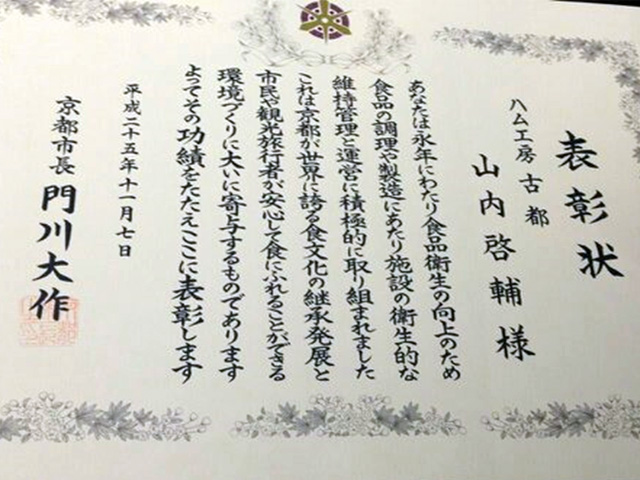 表彰状
ハム工房 古都
山内啓輔様
あなたは永年にわたり食品衛生の向上のため
食品の調理や製造にあたり施設の衛生的な
維持管理と運営に積極的に取り組まれました
これは京都が世界に誇る食文化の継承発展と
市民や観光旅行者が安心して食にふれることができる
環境づくりに大いに寄与するものであります
よってその功績をたたえここに表彰します
平成二十五年十一月七日
京都市長 門川大作